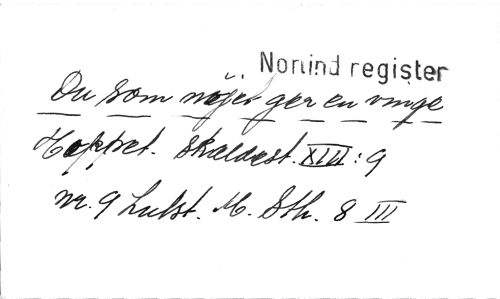 Norlind register
Du som nöjet ger en vinge
Hoppet. Skaldest. XIII: 9
nr. 9 Lulst. M. Sth. 8 III